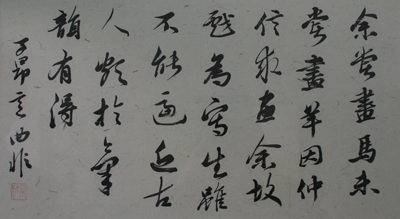 余嘗畫馬未
嘗畫羊因仲
信求画余故
戲為寫生雖
不能逼近古
人頗於氣
韻有得
子昂